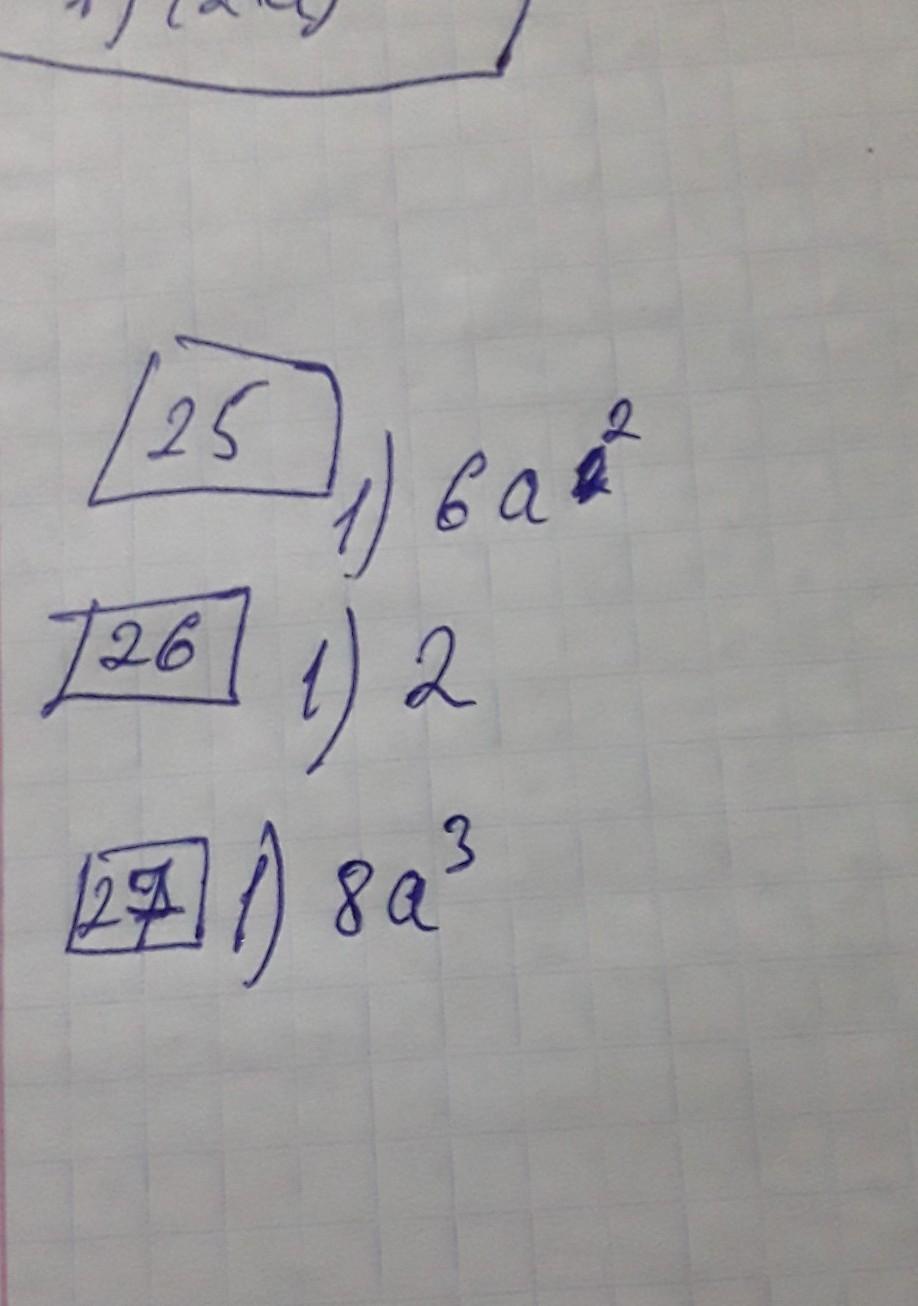 25 1) 6a²
26 1) 2
27 1) 8a³